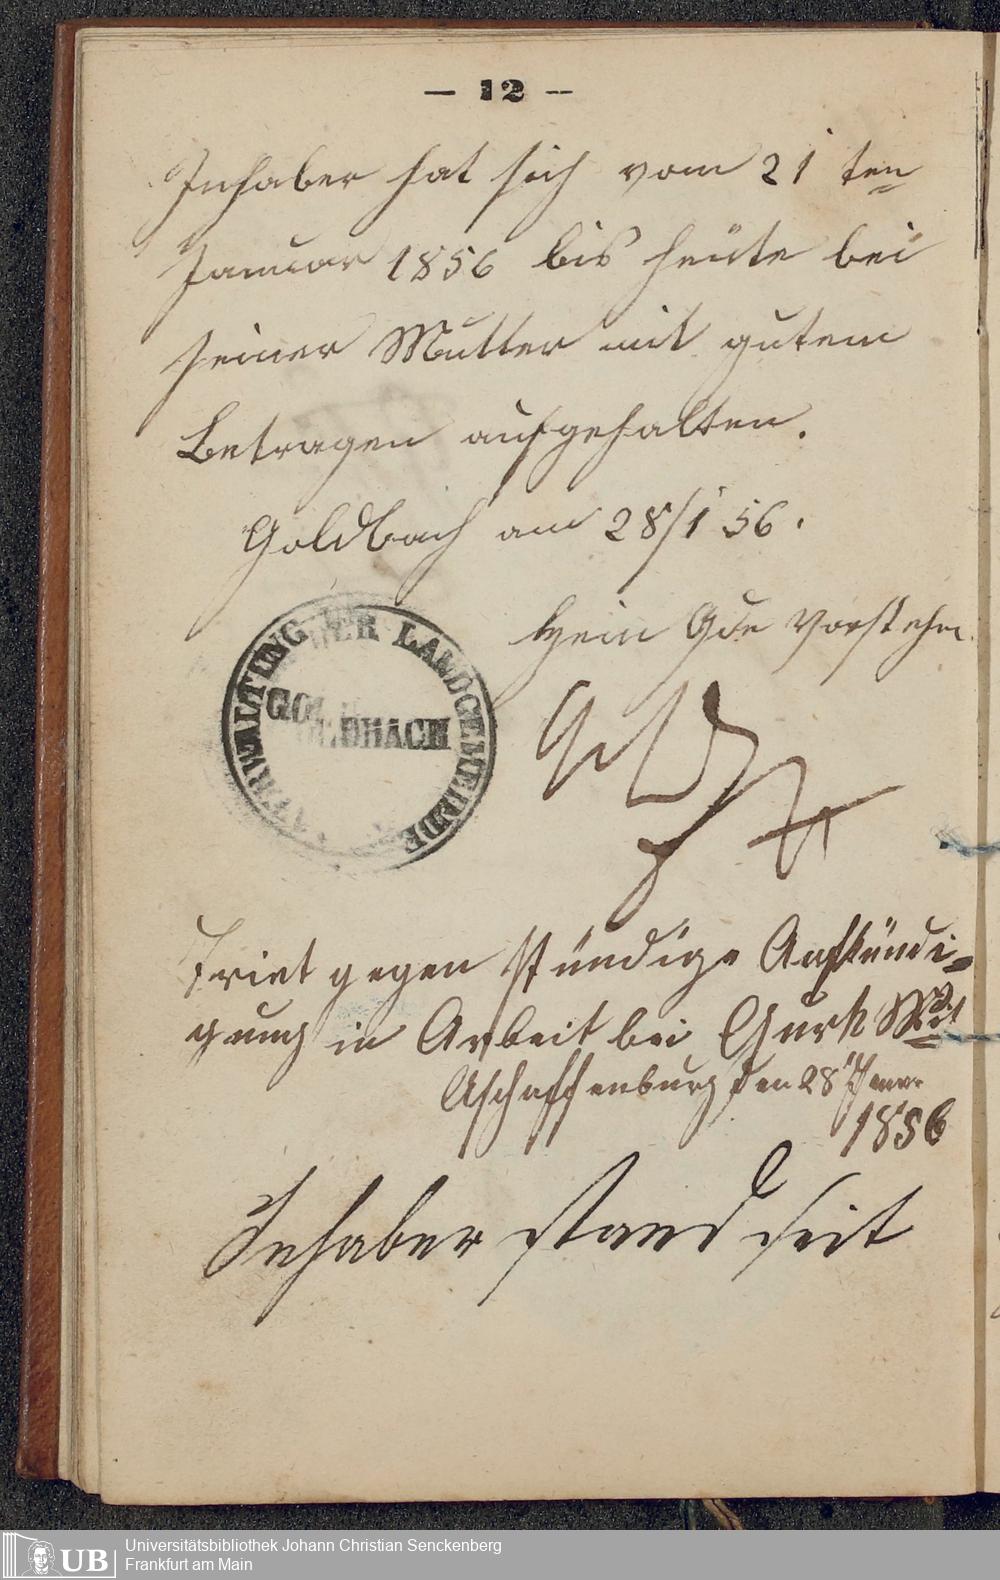 — 12 —
Inhaber hat sich vom 21 ten
Januar 1856 bis heute bei
seiner Mutter mit gutem
Betragen aufgehalten.
Goldbach am 28/1 56.
VERWALTUNG DER LANDGEMEINDE
GOLDBACH
Gde Vorsteher
Tritt gegen stündige Aufkündi-
gung in Arbeit bei
Aschaffenburg den 28
1856
Inhaber stand seit
UB
Universitätsbibliothek Johann Christian Senckenberg
Frankfurt am Main